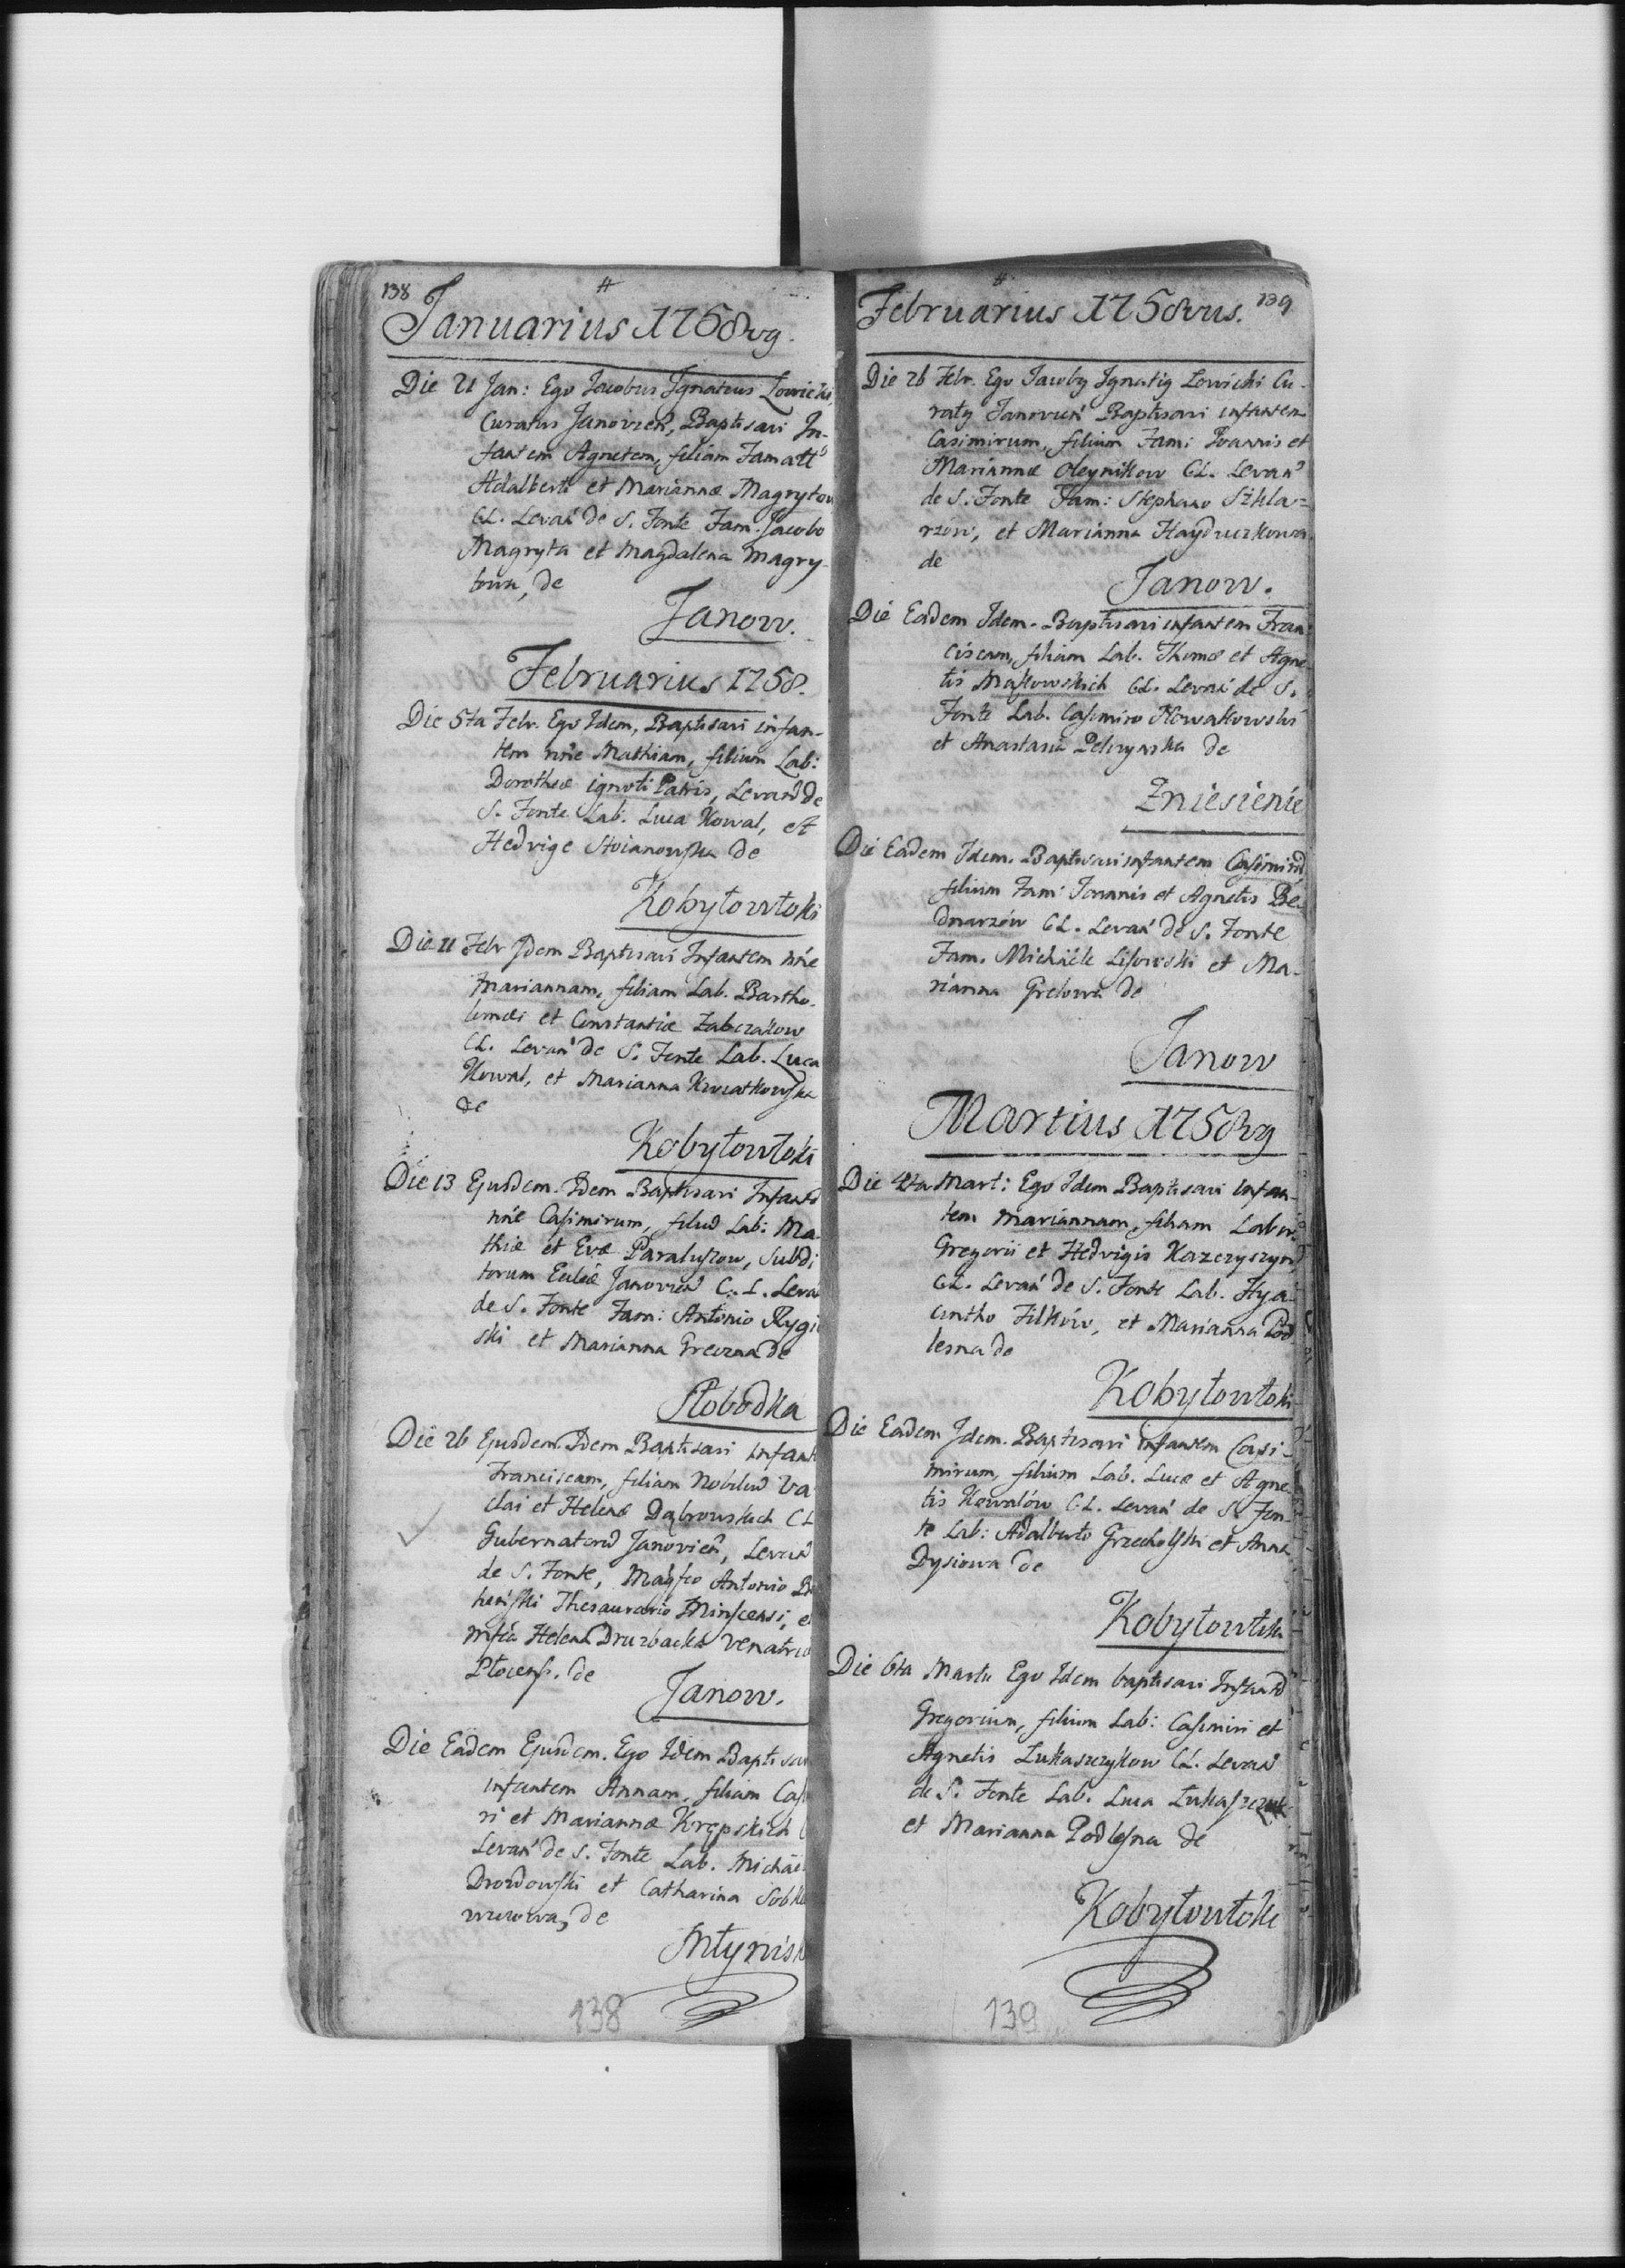 138 #
Januarius 1758vg.
Die 21 Jan: Ego Jacobus Ignatius Łowicki,
Curatus Janovien, Baptisavi In-
fantem Agnetem, filiam Famatt
Adalberti et Mariannæ Magrytow
CL. Levan de S. Fonte Fam. Jacobo
Magryta et Magdalena Magry-
towa, de
Janow.
Februarius 1758.
Die 5ta Febr. Ego Idem, Baptisavi infan-
tem nñe Mathiam, filium Lab:
Dorotheæ ignoti Patris, Levand de
S. Fonte Lab. Luca Kowal, et
Hedvige Stoianowska de
Kobyłowłoki
Die 11 Febr Idem Baptisavi Infantem nñe
Mariannam, filiam Lab. Bartho-
lomæi et Constantiæ Zabczakow
CL. Levan de S. Fonte Lab. Luca
Kowal, et Marianna Kwiatkowska
de
Kobyłowłoki
Die 13 Ejusdem. Idem Baptisavi Infantd
nñe Casimirum, filud Lab: Ma-
thiæ et Evæ Paraluszow, Subdi
torum Ecclæ Janovien C. L. Leva
de S. Fonte Fam: Antonio Rygi
ski et Marianna de
Słobodka
Die 26 Ejusdem. Idem Baptisavi Infant
Franciscam, filiam Nobiliud Va
clai et Helenæ Dąbrowskich CL
Gubernatord Janovien, Levand
de S. Fonte, Magfco Antonio
Thesaurario Minscensi, et
Mfca Helena Druzbacka Venatric
Płocens. de
Janow.
Die Eadem Ejusdem. Ego Idem Baptisav
infantem Annam, filiam Casi
ri et Mariannæ Krępskich
Levan de S. Fonte Lab. Michäel
Drozdowski et Catharina Sobko
wiczowa, de
Młynisk
138
# 139
Februarius 1758vus.
Die 26 Febr. Ego Jacobg Ignatig Łowicki Cu-
ratg Janovien Baptisavi infantem
Casimirum, filium Fam: Joannis et
Mariannæ Oleynikow CL. Levan
de S. Fonte Fam: Stephano Szkla-
rzow, et Marianna Hayduczkowa
de
Janow.
Die Eadem Idem. Baptisavi infantem Fran-
ciscam, filiam Lab. Thomæ et Agne-
tis Maskowskich CL. Levan de S.
Fonte Lab. Casimiro Nowakowski
et Anastasia Pelczynska de
Zniesienie
Die Eadem Idem. Baptisavi infantem Casimird
filium Fam: Joannis et Agnetis Be-
dnarzów CL. Levan de S. Fonte
Fam. Michäele Lisowski et Ma-
rianna Grelowa de
Janow
Martius 1758vg
Die 4ta Mart: Ego Idem Baptisavi Infan-
tem Mariannam, filiam Labor.
Gregorii et Hedvigis Kazczyszyn
CL. Levan de S. Fonte Lab. Hya-
cintho Filków, et Marianna Pod
lesna de
Kobyłowłoki
Die Eadem Idem. Baptisavi infantem Casi-
mirum, filium Lab. Lucæ et Agne-
tis Kowalów CL. Levan de S. Fon-
te Lab: Adalberto Grzecholski et Anna
Dysiowa de
Kobyłowłoki
Die 6ta Martii Ego Idem baptisavi Infantd
Gregorium, filium Lab: Casimiri et
Agnetis Łukaszczykow CL. Levand
de S. Fonte Lab. Luca Łukaszczuk
et Marianna Podlesna de
Kobyłowłoki
139